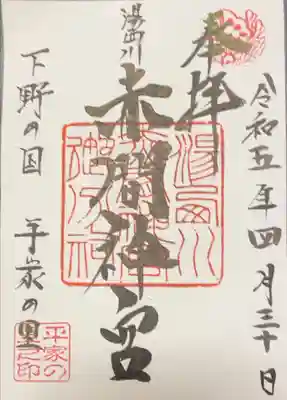 令和五年四月三十日
奉拝
湯西川
赤間神宮
下野の国 平家の里
平家の里之印